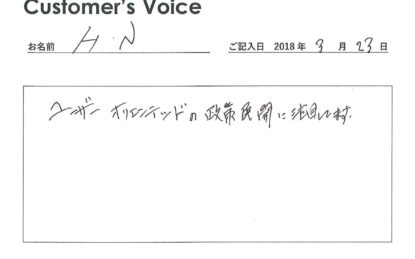 Customer's Voice
お名前 H.N ご記入日 2018年 3月 23日
ユーザーオリエンテッドの政策民間に注目してます。